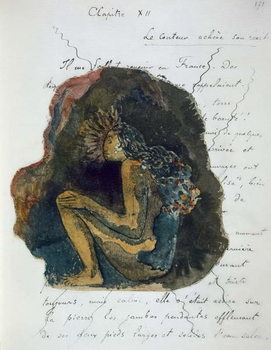 Chapitre XII
Le Conteur achève son récit
Il me fallut revenir en France. Des
appelaient
terre
de quelque,
arrivée et
ont
bien
moment
et triste
toujours, mais calme, elle s'était assise sur
la pierre, les jambes pendantes effleurant
de ses deux pieds larges et solides l'eau salée